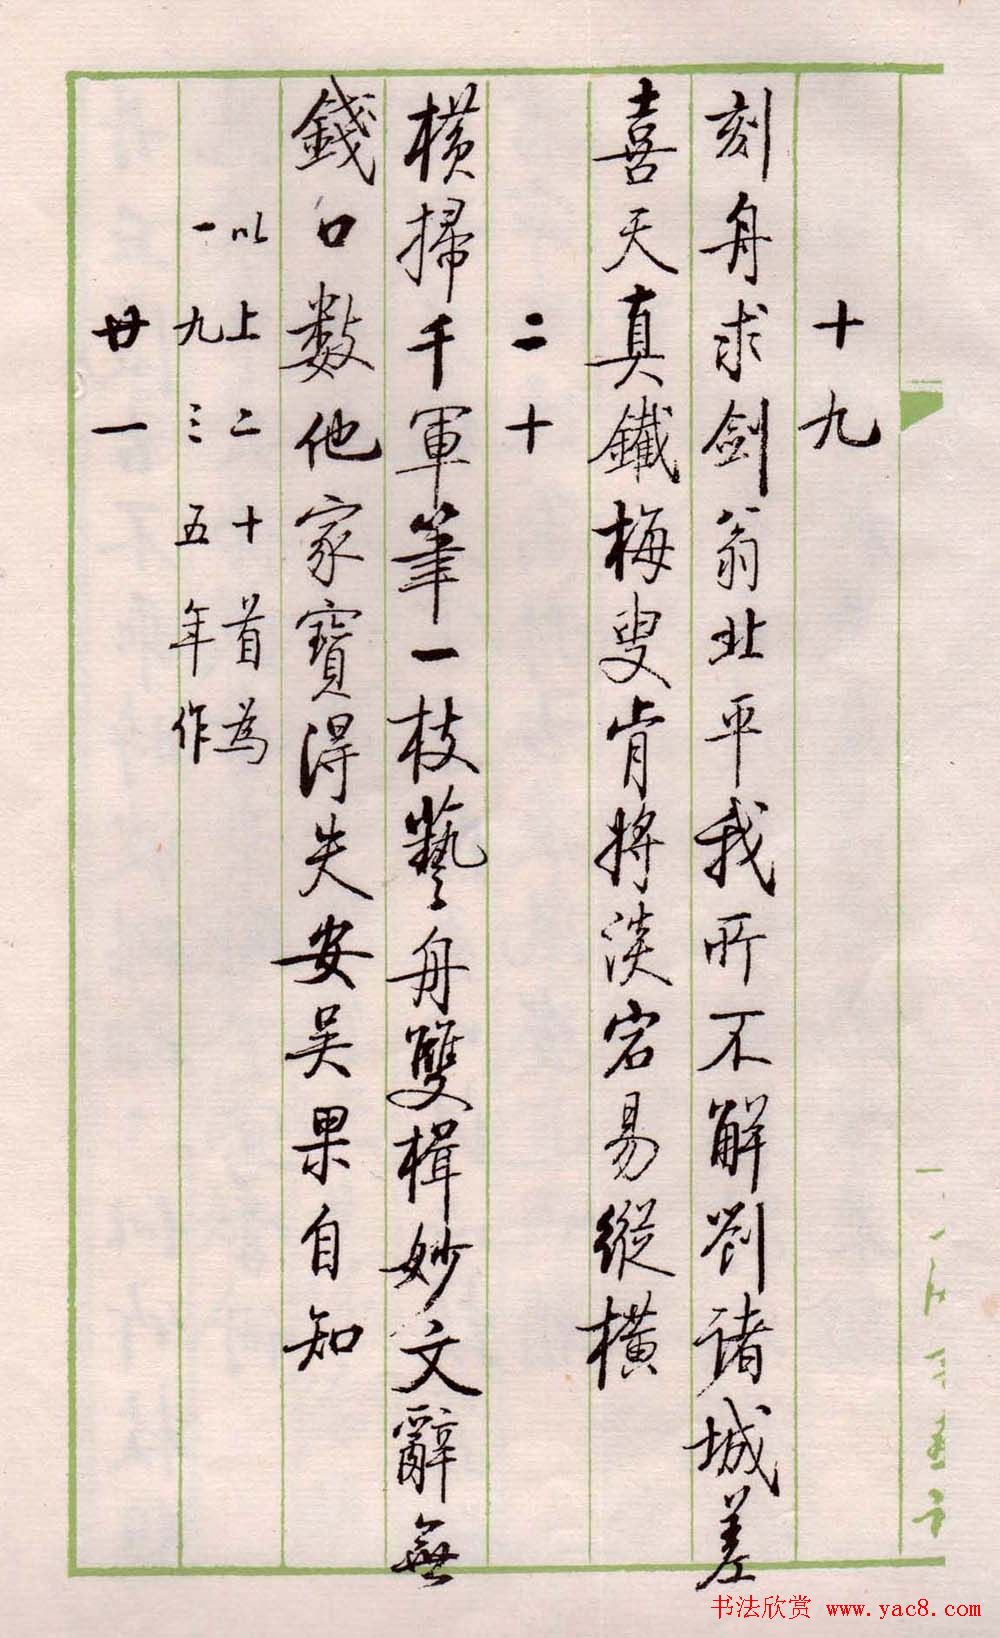 十九
刻舟求劍翁北平我所不解劉諸城差
喜天真鐵梅叟肯將淡宕易縱橫
二十
橫掃千軍筆一枝藝舟雙楫妙文辭無
錢口數他家寶得失安吴果自知
以上二十首為
一九三五年作
廿一
书法欣赏 www.yac8.com